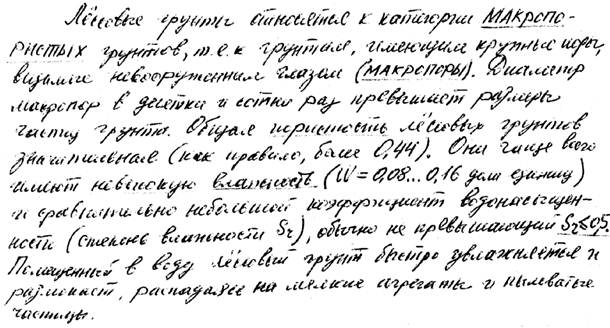 Лёссовые грунты относятся к категории МАКРОПО-
РИСТЫХ грунтов, т.е. к грунтам, имеющим крупные поры,
видимые невооруженным глазом (МАКРОПОРЫ). Диаметр
макропор в десятки и сотни раз превышает размеры
частиц грунта. Общая пористость лёссовых грунтов
значительная (как правило, более 0,44). Они чаще всего
имеют невысокую влажность (W = 0,08...0,16 доли единиц)
и сравнительно небольшой коэффициент водонасыщен-
ности (степень влажности Sr), обычно не превышающий Sr≤0,5.
Помещенный в воду лёссовый грунт быстро увлажняется и
размокает, распадаясь на мелкие агрегаты и пылеватые
частицы.